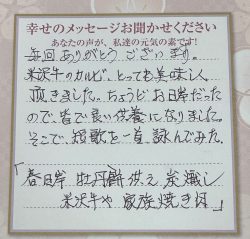 幸せのメッセージお聞かせください
あなたの声が、私達の元気の素です!
毎回ありがとうございます。
米沢牛のカルビ、とっても美味しく
頂きました。ちょうどお彼岸だった
ので、皆で良い供養になりました。
そこで、短歌を一首詠んでみた。
「春日岸 牡丹餅 供え 炭熾し
米沢牛や 家族焼き